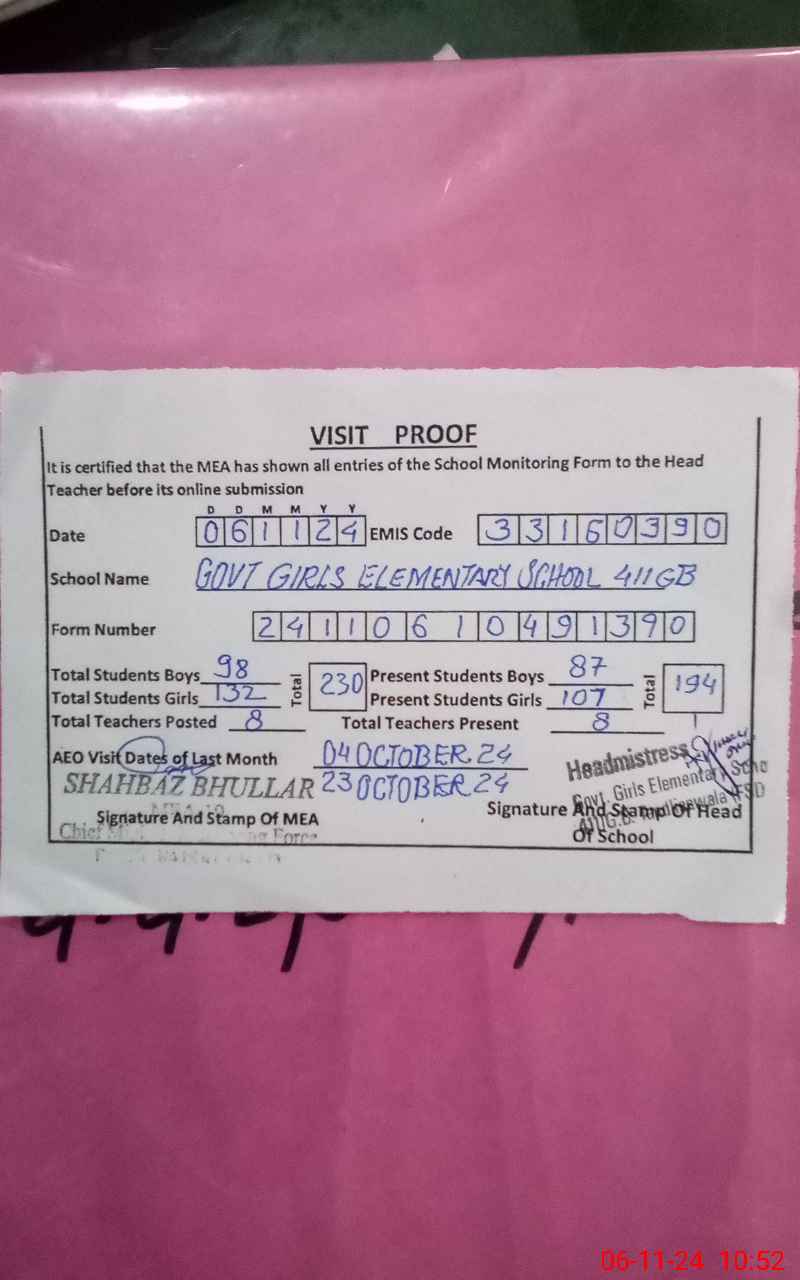 VISIT PROOF
It is certified that the MEA has shown all entries of the School Monitoring Form to the Head
Teacher before its online submission
D D M M Y Y
Date 061124 EMIS Code 33160390
School Name GOVT GIRLS ELEMENTARY SCHOOL 411GB
Form Number 24110610491390
Total Students Boys 98 Total 230 Present Students Boys 87 Total 194
Total Students Girls 132 Present Students Girls 107
Total Teachers Posted 8 Total Teachers Present 8
AEO Visit Dates of Last Month 04 OCTOBER 24 Headmistress
SHAHBAZ BHULLAR 23 OCTOBER 24 Govt. Girls Elementary
Signature And Stamp Of MEA Signature And Stamp Of Head
Of School
Chief Force
06-11-24 10:52